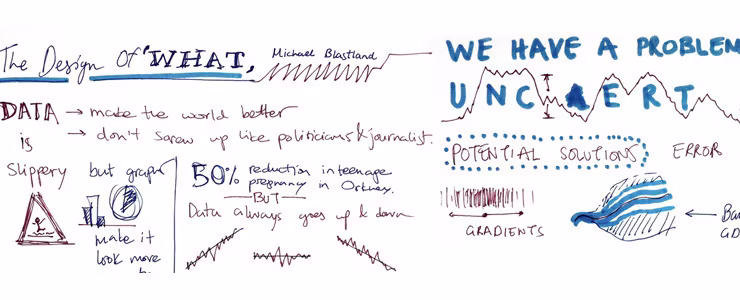 The Design Of 'WHAT,
Michael Blastland
DATA → make the world better
is → don't screw up like politicians & journalist.
Slippery but graph
make it
look more
50% reduction in teenage
pregnancy in Orkney.
BUT
Data always goes up & down
WE HAVE A PROBLEM
UNCERT
POTENTIAL SOLUTIONS
ERROR
GRADIENTS